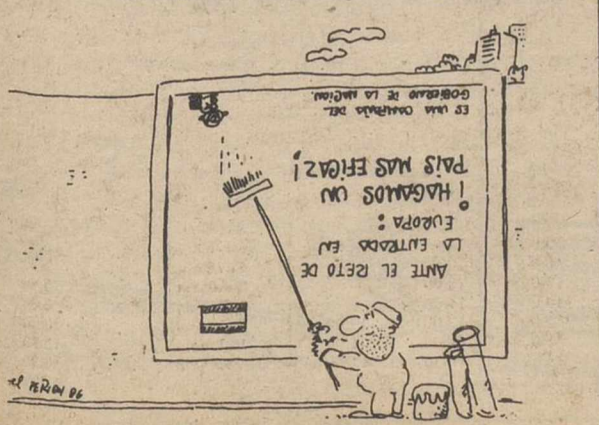 ANTE EL RETO DE
LA ENTRADA EN
EUROPA:
¡HAGAMOS UN
PAÍS MAS EFICAZ!
ES UNA CAMPAÑA DEL
GOBIERNO DE LA NACION.
el PERICH 86